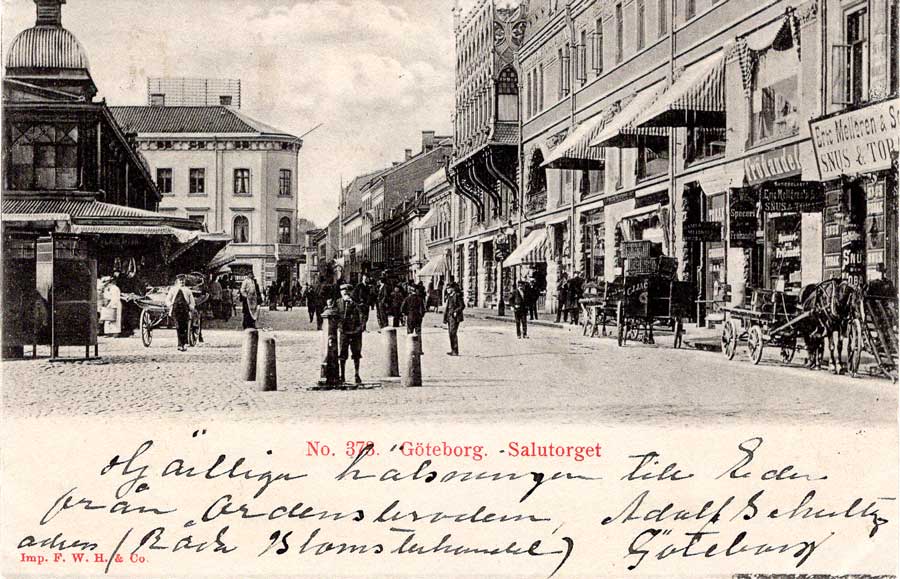 Eric Mellgren &
SNUS & TOB
Speceri
SNUS
No. 373. Göteborg. - Salutorget
Hjärtliga hälsningar till Eder
från Ordensbrodern, Adolf Schultz
adress (Röda Blomsterhandel) Göteborg
Imp. F. W. H. & Co.